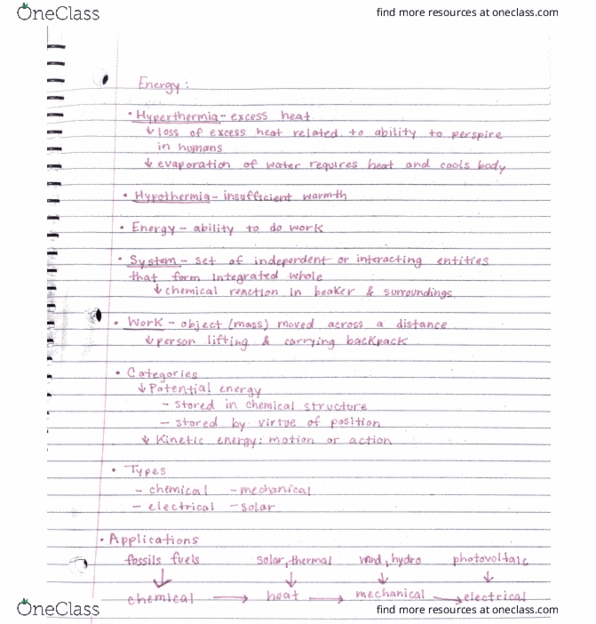 OneClass
find more resources at oneclass.com
Energy:
• Hyperthermia - excess heat
↓ loss of excess heat related to ability to perspire
in humans
↓ evaporation of water requires heat and cools body
• Hypothermia - insufficient warmth
• Energy - ability to do work
• System - set of independent or interacting entities
that form integrated whole
↓ chemical reaction in beaker & surroundings
• Work - object (mass) moved across a distance
↓ person lifting & carrying backpack
• Categories
↓ Potential energy
- stored in chemical structure
- stored by virtue of position
↓ Kinetic energy: motion or action
• Types
- chemical - mechanical
- electrical - solar
• Applications
fossils fuels solar, thermal wind, hydro photovoltaic
↓ ↓ ↓ ↓
chemical → heat → mechanical → electrical
OneClass
find more resources at oneclass.com